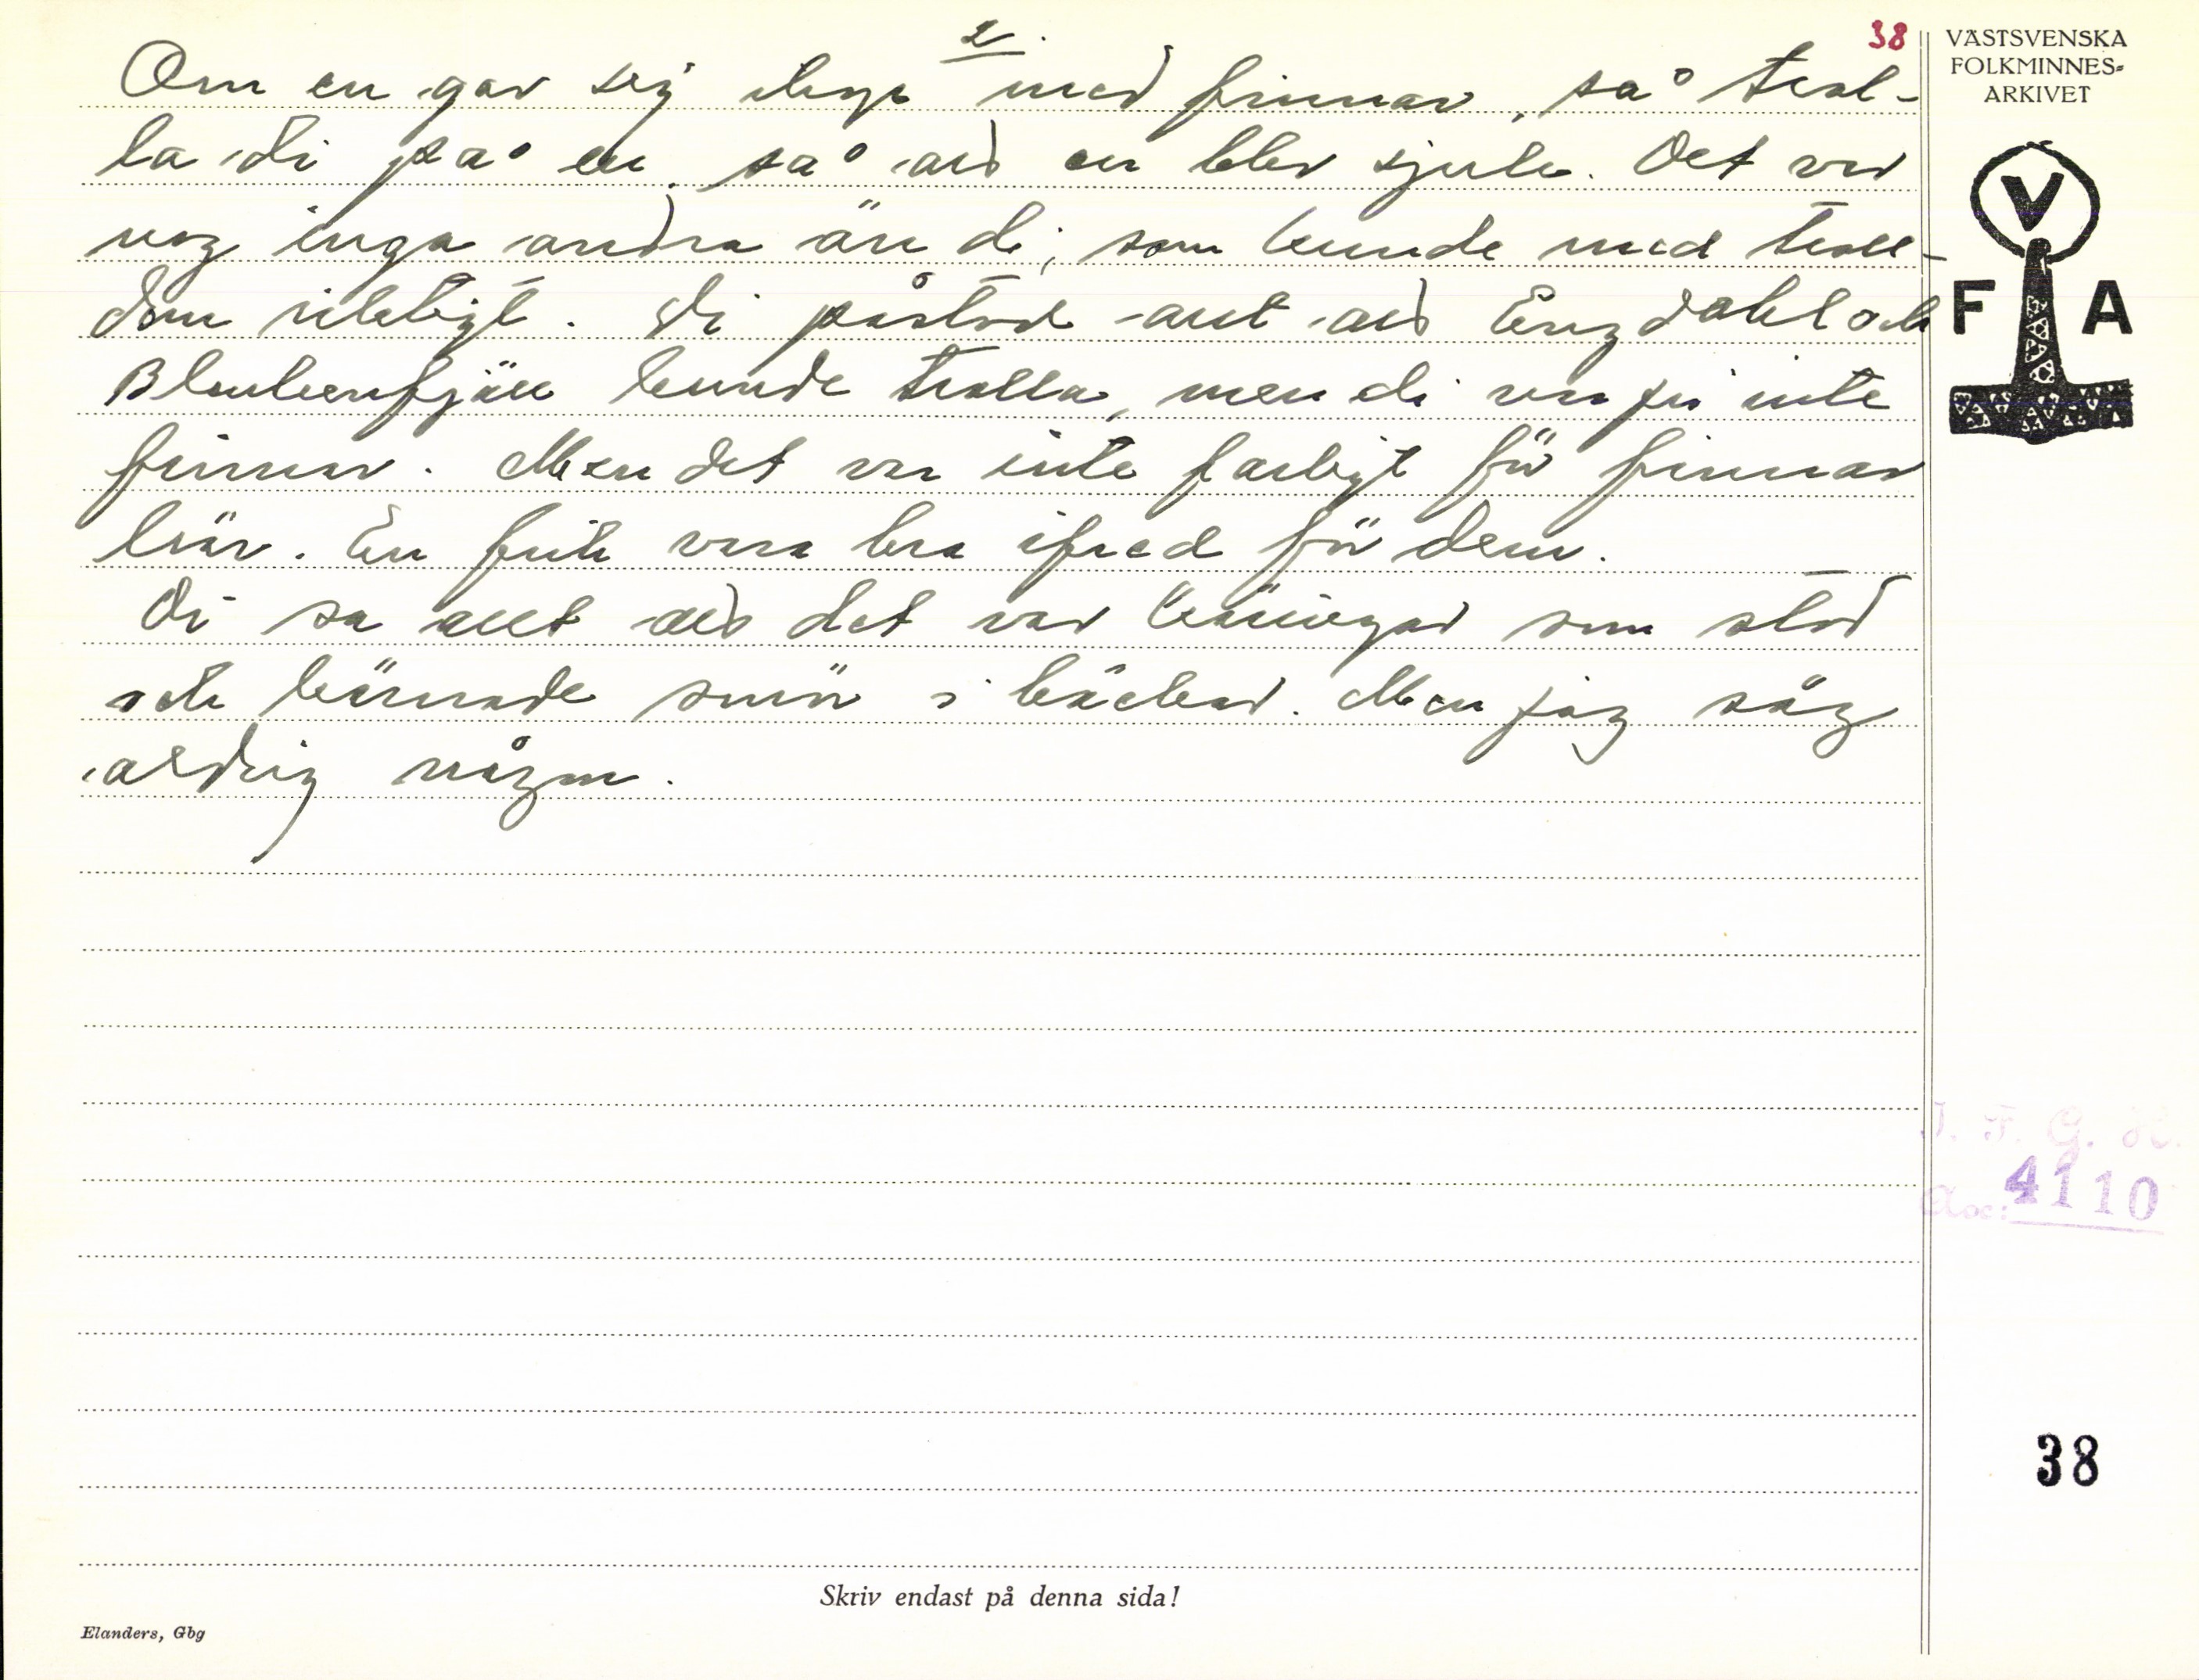 2.
38
Om en gav sig ihop med finnar, så trol-
la di på en, så att en blev sjuk. Det var
nog inga andra än di, som kunde med troll-
dom riktigt. Di påstod att Engdahl och
kunde trolla, men di var ju inte
finnar. Men det var inte farligt för finnar
här. En fick vara bra ifred för dem.
Di sa att det var käringar som stod
och kärnade smör i bäckar. Men jag såg
aldrig någon.
VÄSTSVENSKA
FOLKMINNES-
ARKIVET
V
F A
I. F. G. H.
Acc: 4110
38
Skriv endast på denna sida!
Elanders, Gbg